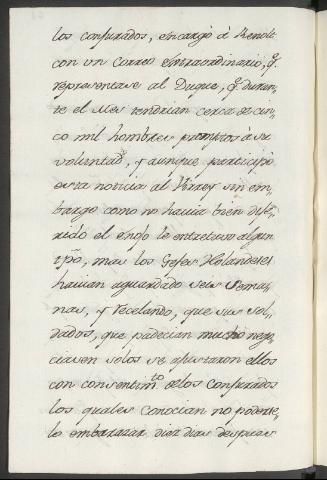 los conjurados, encargò à Renolt
con un Correo extraordinario, q.
representase al Duque, q. duran-
te el Mes tendrian cerca de cin-
co mil hombres promptos à su
voluntad, y aunque participò
esta noticia al Virrey sin em-
bargo como no havia bien dife-
rido el enojo le entretuvo algun
tpõ, mas los Gefes Holandeses
havian aguardado seis Sema-
nas, y recelando, que sus sol-
dados, que padecian mucho nego-
ciasen solos se ajustaron ellos
con consentim.to de los Conjurados
los quales conocian no poderse-
lo embarazar diez dias despues